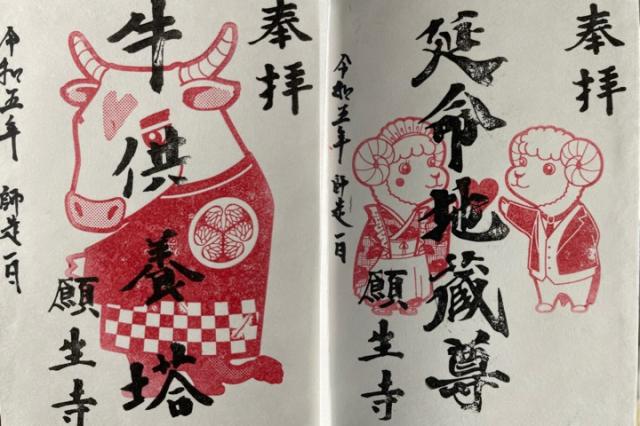 奉拝
延命地蔵尊
願生寺
令和五年 師走 一日
奉拝
牛供養塔
願生寺
令和五年 師走 一日